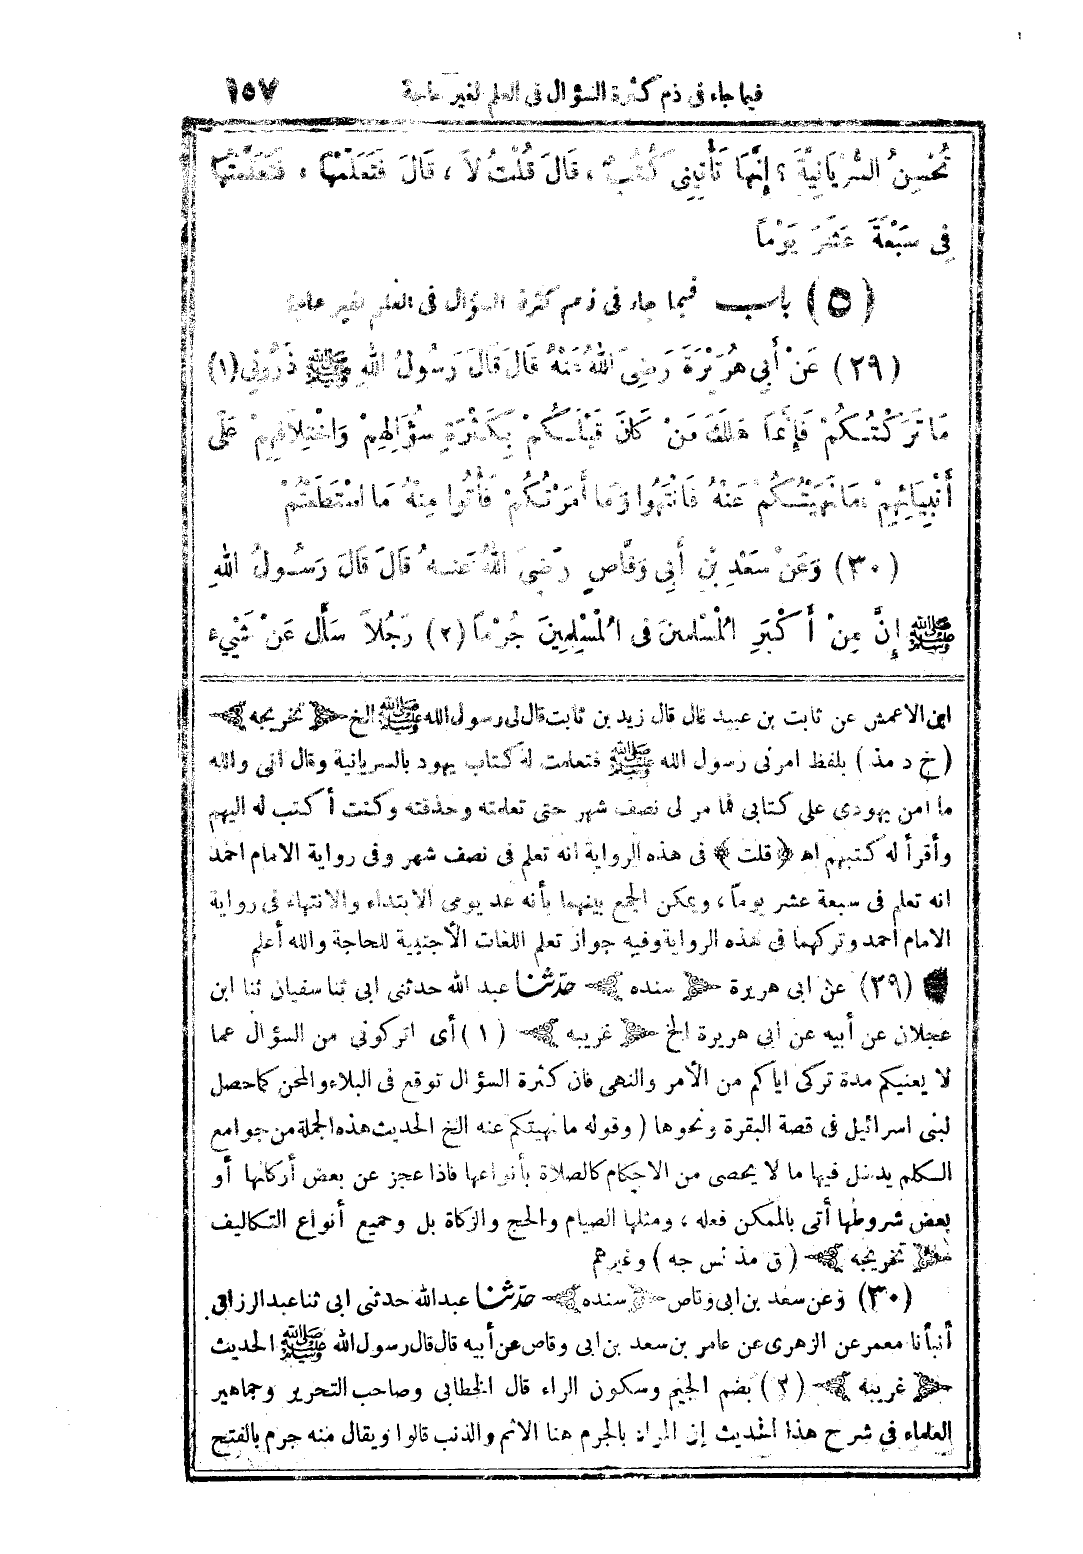 فيما جاء فى ذم كثرة السؤال فى العلم لغير حاجة ١٥٧
تُحْسِنُ السُّرْيَانِيَّةَ؟ إِنَّهَا تَأْتِينِى كُتُبٌ، قَالَ قُلْتُ لاَ، قَالَ فَتَعَلَّمْهَا، فَتَعَلَّمْتُهَا
فِى سَبْعَةَ عَشَرَ يَوْمًا
(٥) باب فيما جاء فى ذم كثرة السؤال فى العلم لغير حاجة
(٢٩) عَنْ أَبِى هُرَيْرَةَ رَضِىَ اللهُ عَنْهُ قَالَ قَالَ رَسُولُ اللهِ ﷺ ذَرُونِى (١)
مَا تَرَكْتُكُمْ فَإِنَّمَا هَلَكَ مَنْ كَانَ قَبْلَكُمْ بِكَثْرَةِ سُؤَالِهِمْ وَاخْتِلَافِهِمْ عَلَى
أَنْبِيَائِهِمْ مَا نَهَيْتُكُمْ عَنْهُ فَانْتَهُوا وَمَا أَمَرْتُكُمْ فَأْتُوا مِنْهُ مَا اسْتَطَعْتُمْ
(٣٠) وَعَنْ سَعْدِ بْنِ أَبِى وَقَّاصٍ رَضِىَ اللهُ عَنْهُ قَالَ قَالَ رَسُولُ اللهِ
ﷺ إِنَّ مِنْ أَكْبَرِ الْمُسْلِمِينَ فِى الْمُسْلِمِينَ جُرْمًا (٢) رَجُلاً سَأَلَ عَنْ شَىْءٍ
ابن الاعمش عن ثابت بن عبيد قال قال زيد بن ثابت قال لى رسول الله ﷺ الخ ﴿ تخريجه ﴾
(خ د مذ) بلفظ امرنى رسول الله ﷺ فتعلمت له كتاب يهود بالسريانية وقال انى والله
ما آمن يهودى على كتابى فما مر لى نصف شهر حتى تعلمته وحذقته وكنت أكتب له اليهم
وأقرأ له كتبهم اه ﴿ قلت ﴾ فى هذه الرواية انه تعلم فى نصف شهر وفى رواية الامام احمد
انه تعلم فى سبعة عشر يوماً، ويمكن الجمع بينهما بأنه عد يومى الابتداء والانتهاء فى رواية
الامام احمد وتركهما فى هذه الرواية وفيه جواز تعلم اللغات الأجنبية للحاجة والله أعلم
(٢٩) عن ابى هريرة ﴿ سنده ﴾ حدّثنا عبد الله حدثنى ابى ثنا سفيان ثنا ابن
عجلان عن أبيه عن ابى هريرة الخ ﴿ غريبه ﴾ (١) أى اتركونى من السؤال عما
لا يعنيكم مدة تركى اياكم من الأمر والنهى فان كثرة السؤال توقع فى البلاء والمحن كما حصل
لبنى اسرائيل فى قصة البقرة ونحوها (وقوله ما نهيتكم عنه الخ الحديث هذه الجملة من جوامع
الكلم يدخل فيها ما لا يحصى من الاحكام كالصلاة بأنواعها فاذا عجز عن بعض أركانها أو
بعض شروطها أتى بالممكن فعله، ومثلها الصيام والحج والزكاة بل وجميع أنواع التكاليف
﴿ تخريجه ﴾ (ق مذ نس جه) وغيرهم
(٣٠) وعن سعد بن ابى وقاص ﴿ سنده ﴾ حدّثنا عبد الله حدثنى ابى ثنا عبد الرزاق
أنبأنا معمر عن الزهرى عن عامر بن سعد بن ابى وقاص عن أبيه قال قال رسول الله ﷺ الحديث
﴿ غريبه ﴾ (٢) بضم الجيم وسكون الراء قال الخطابى وصاحب التحرير وجماهير
العلماء فى شرح هذا الحديث إن المراد بالجرم هنا الاثم والذنب قالوا ويقال منه جرم بالفتح